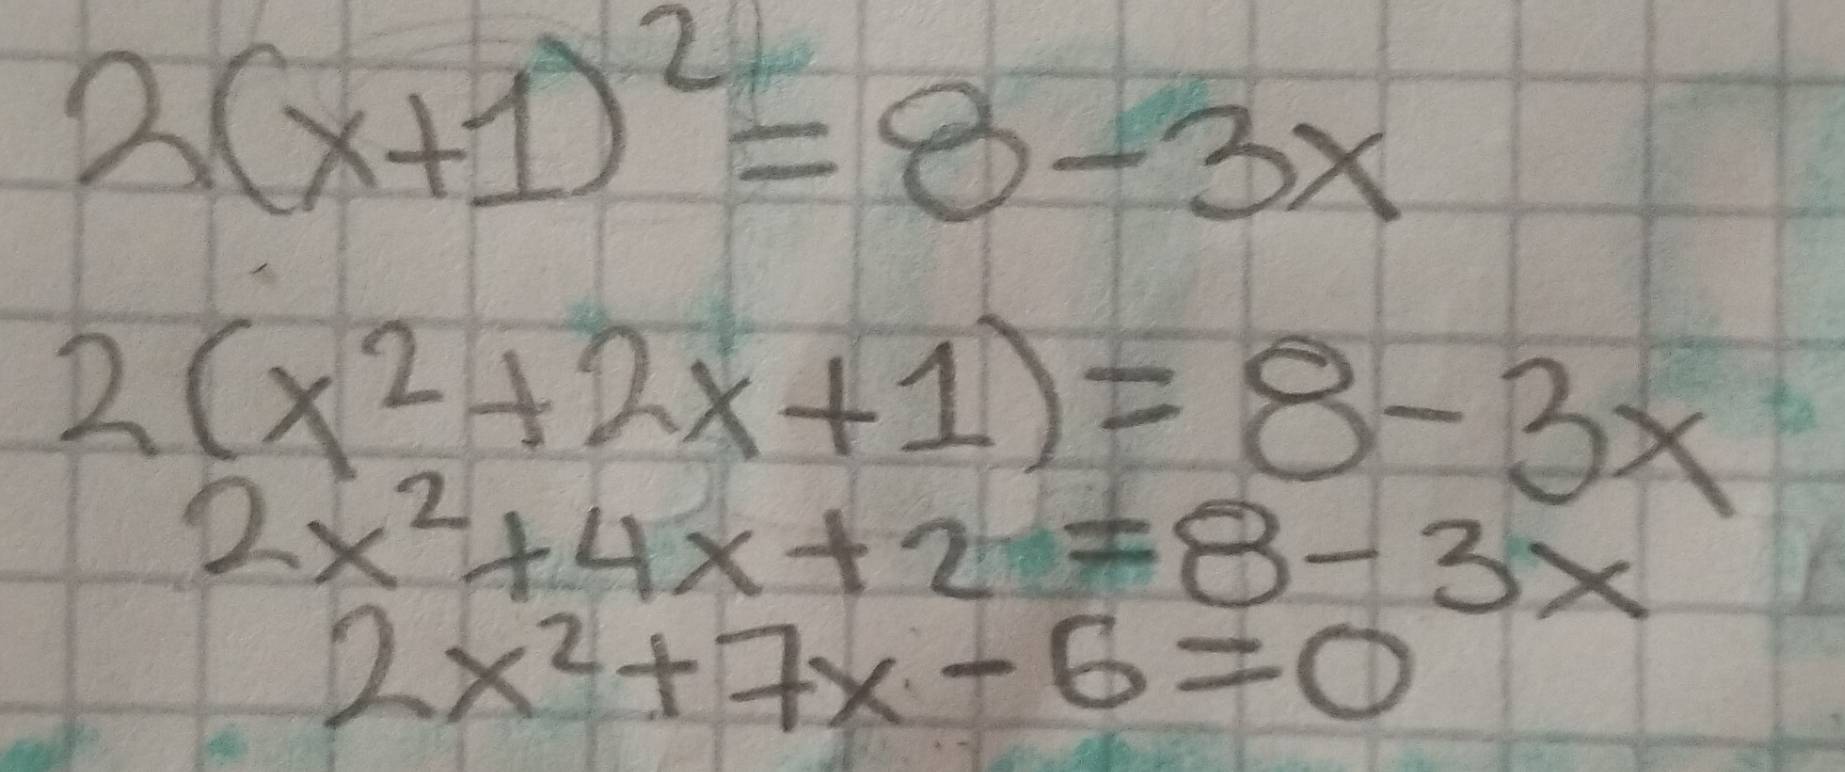 2(x+1)² = 8 - 3x
2(x² + 2x + 1) = 8 - 3x
2x² + 4x + 2 = 8 - 3x
2x² + 7x - 6 = 0